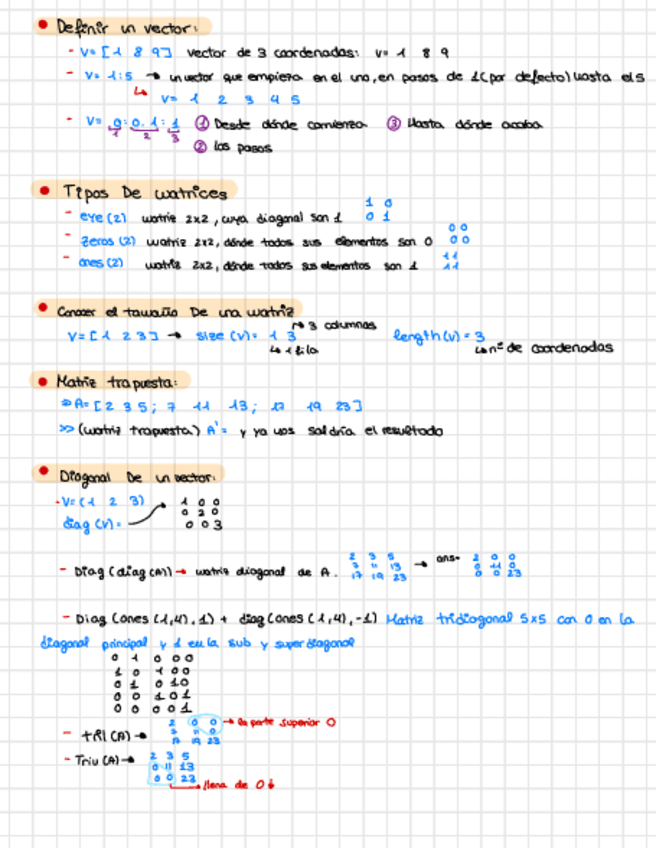 • Definir un vector:
- V= [1 8 9] vector de 3 coordenadas: v= 1 8 9
- V= 1:5 → un vector que empieza en el uno, en pasos de 1 (por defecto) hasta el 5
↳ V= 1 2 3 4 5
- V= 0:0.1:1 ① Desde dónde comienza ③ Hasta dónde acaba
1 2 3
② los pasos
• Tipos De matrices
- eye(2) matriz 2x2, cuya diagonal son 1
1 0
0 1
- Zeros(2) matriz 2x2, dónde todos sus elementos son 0
0 0
0 0
- ones(2) matriz 2x2, dónde todos sus elementos son 1
1 1
1 1
• Conocer el tamaño De una matriz
V=[1 2 3] → size(v)= 1 3 ↱ 3 columnas length(v)=3
↳ 1 fila ↳ nº de coordenadas
• Matriz trapuesta:
>> A= [2 3 5; 7 11 13; 17 19 23]
>> (matriz trapuesta) A'= y ya nos saldría el resultado
• Diagonal De un vector:
- V=(1 2 3)
diag(v)=
1 0 0
0 2 0
0 0 3
- Diag(diag(A)) → matriz diagonal de A.
2 3 5
7 11 13
17 19 23
→ ans=
2 0 0
0 11 0
0 0 23
- Diag(ones(1,4),1) + diag(ones(1,4),-1) Matriz tridiagonal 5x5 con 0 en la
diagonal principal y 1 en la sub y superdiagonal
0 1 0 0 0
1 0 1 0 0
0 1 0 1 0
0 0 1 0 1
0 0 0 0 1
- tRI(A) →
2 0 0 → la parte superior 0
7 11 0
17 19 23
- Triu(A) →
2 3 5
0 11 13
0 0 23
→ llena de 0 ↓